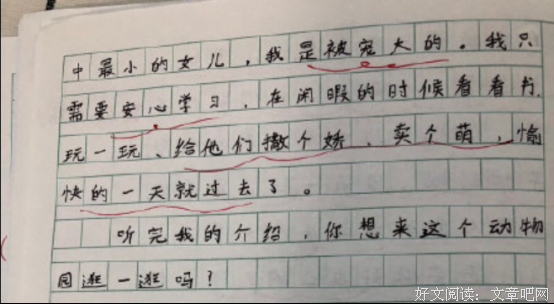 中最小的女儿，我是被宠大的。我只
需要安心学习，在闲暇的时候看看书，
玩一玩、给他们撒个娇、卖个萌，愉
快的一天就过去了。
听完我的介绍，你想来这个动物
园逛一逛吗？
好文阅读：文章吧网